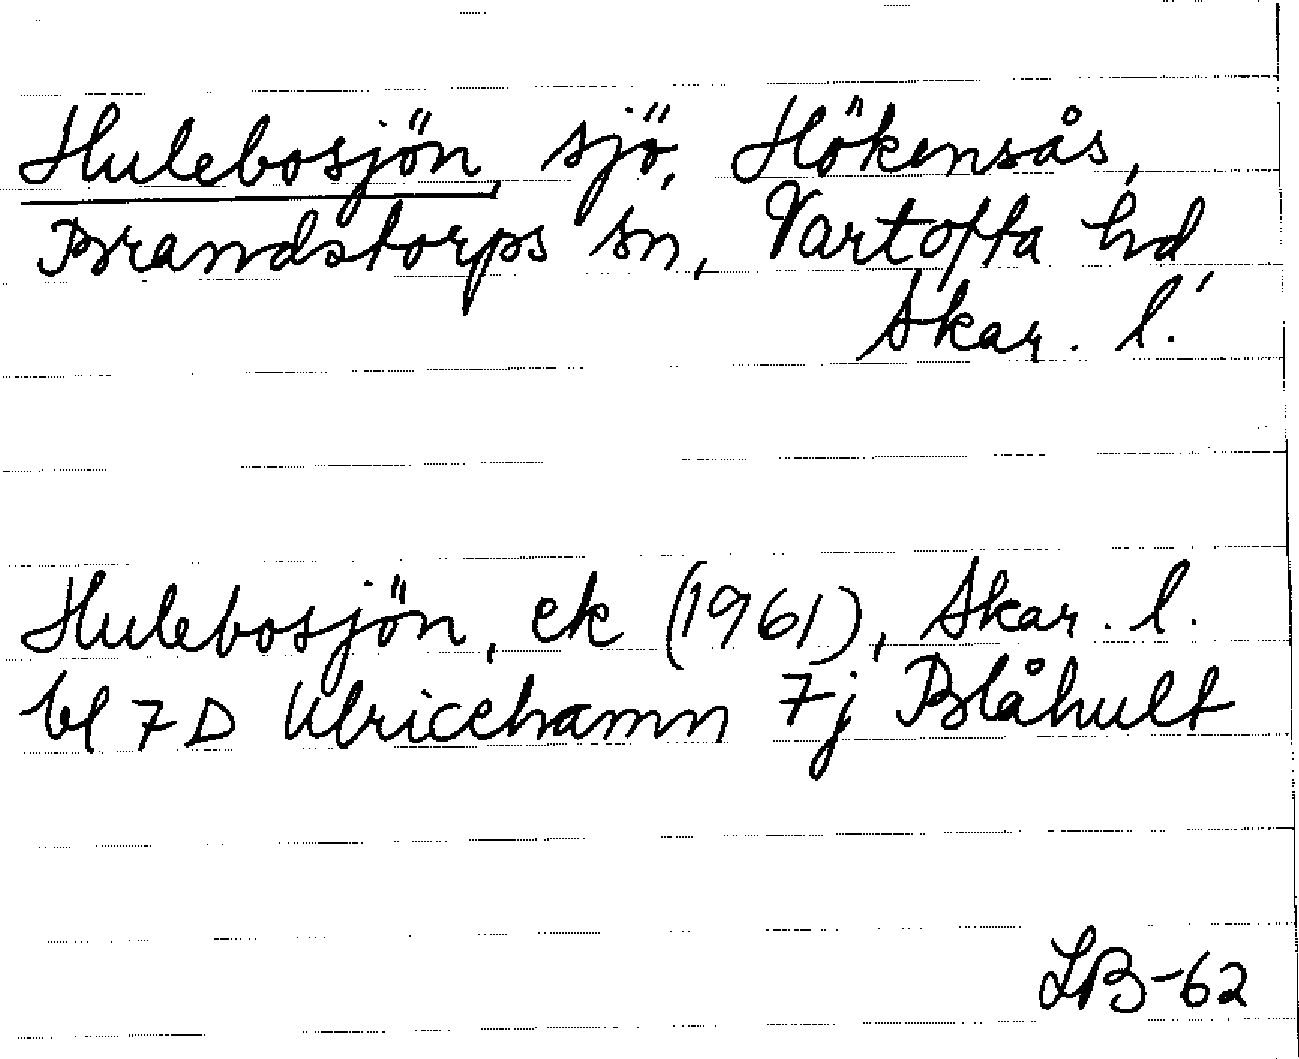 Hulebosjön, sjö, Hökensås,
Brandstorps sn, Vartofta hd,
Skar. l.
Hulebosjön, ek (1961), Skar. l.
bl 7 D Ulricehamn 7j Blåhult
LB-62